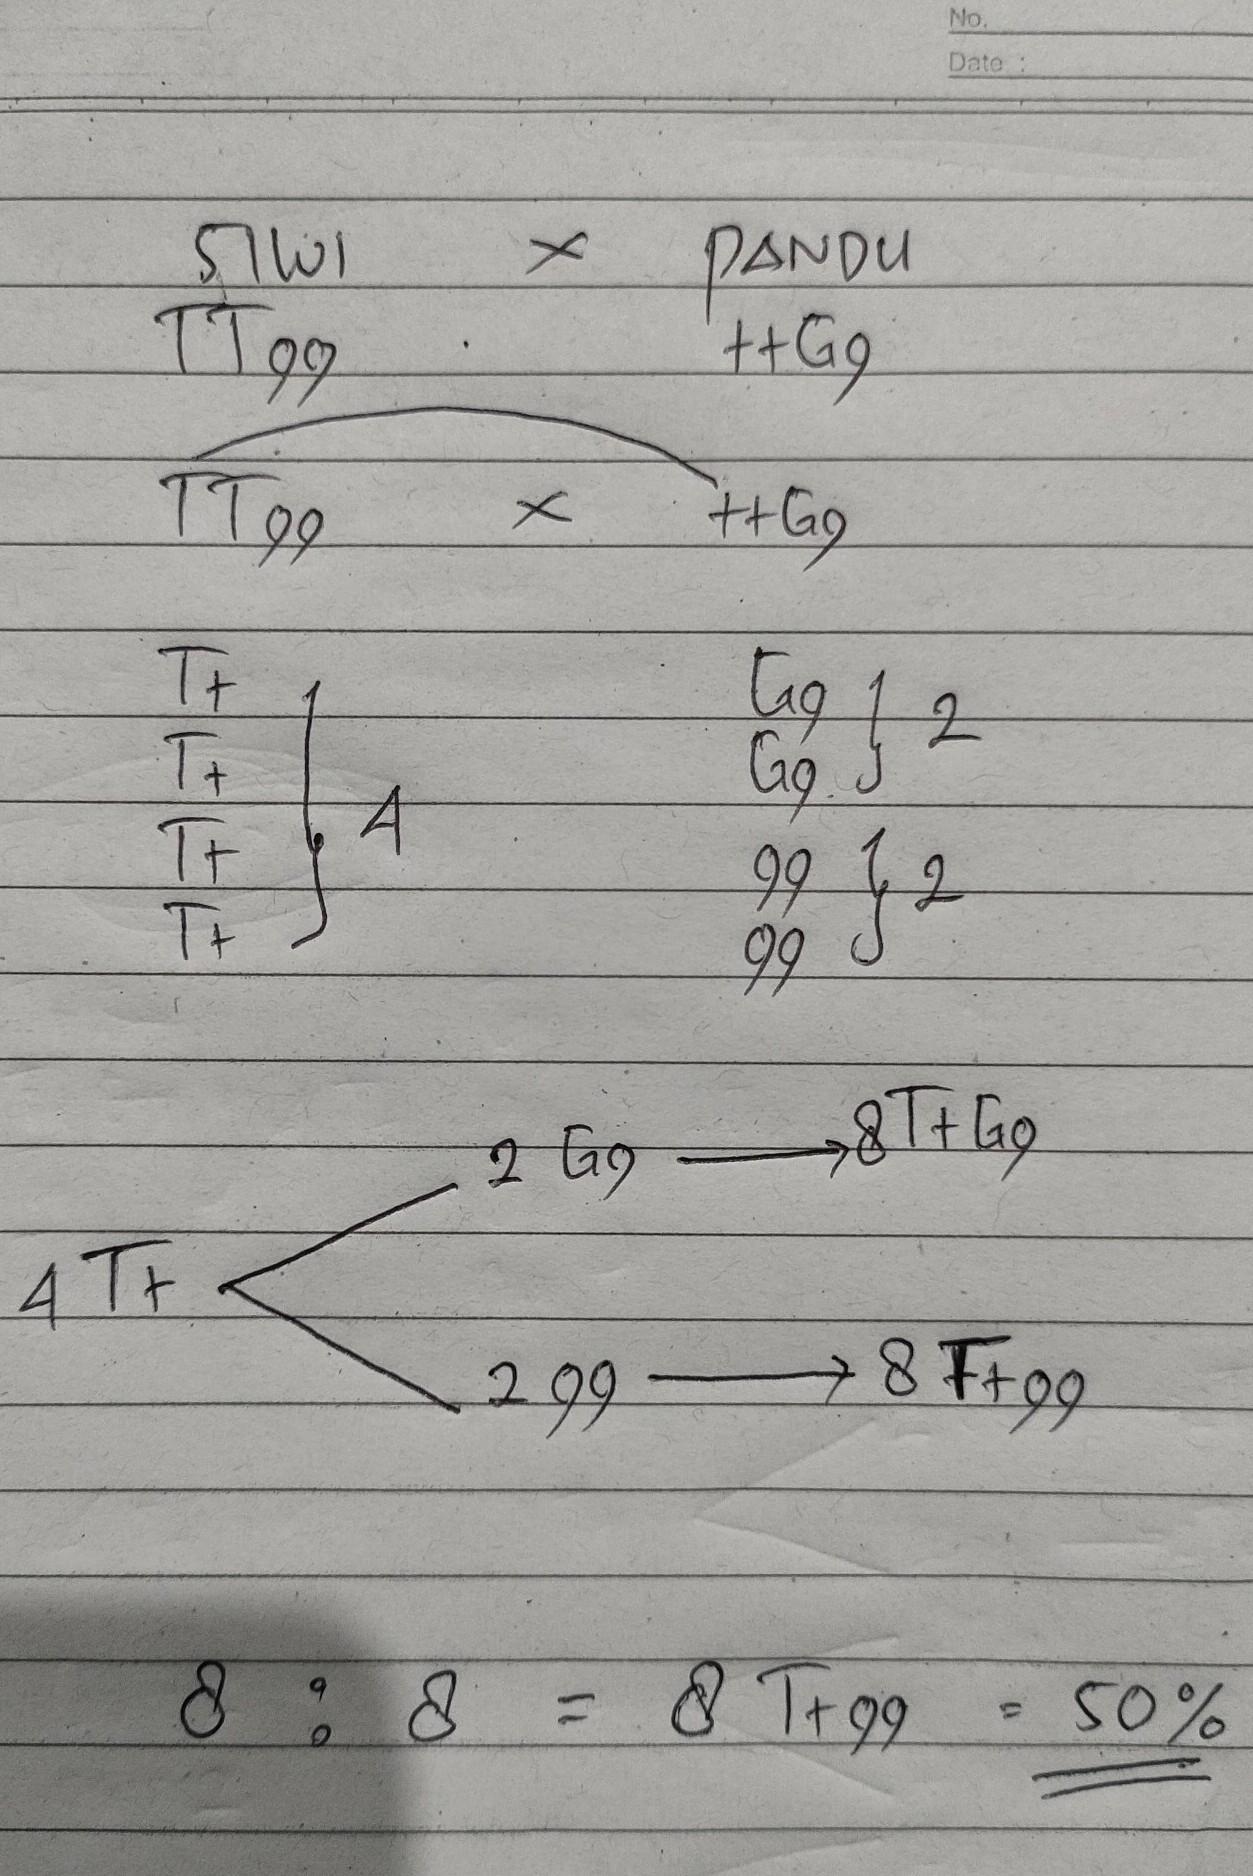 No.
Date :
SIWI x PANDU
TTgg ttGg
TTgg x ttGg
Tt Gg
Tt Gg } 2
Tt } 4 gg
Tt gg } 2
2 Gg → 8TtGg
4 Tt
2 gg → 8 Ttgg
8 : 8 = 8 Ttgg = 50%